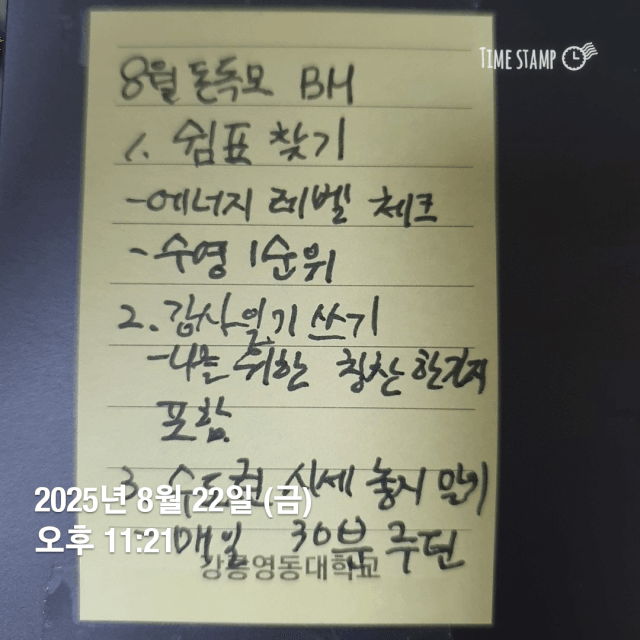 TIME STAMP
8월 돈독모 BH
1. 쉼표 찾기
-에너지 레벨 체크
- 수영 1순위
2. 감사일기 쓰기
-나를 위한 칭찬 한가지
포함
3. 수도권 시세 놓지 않기
2025년 8월 22일 (금)
매일 30분 루틴
오후 11:21
강릉영동대학교